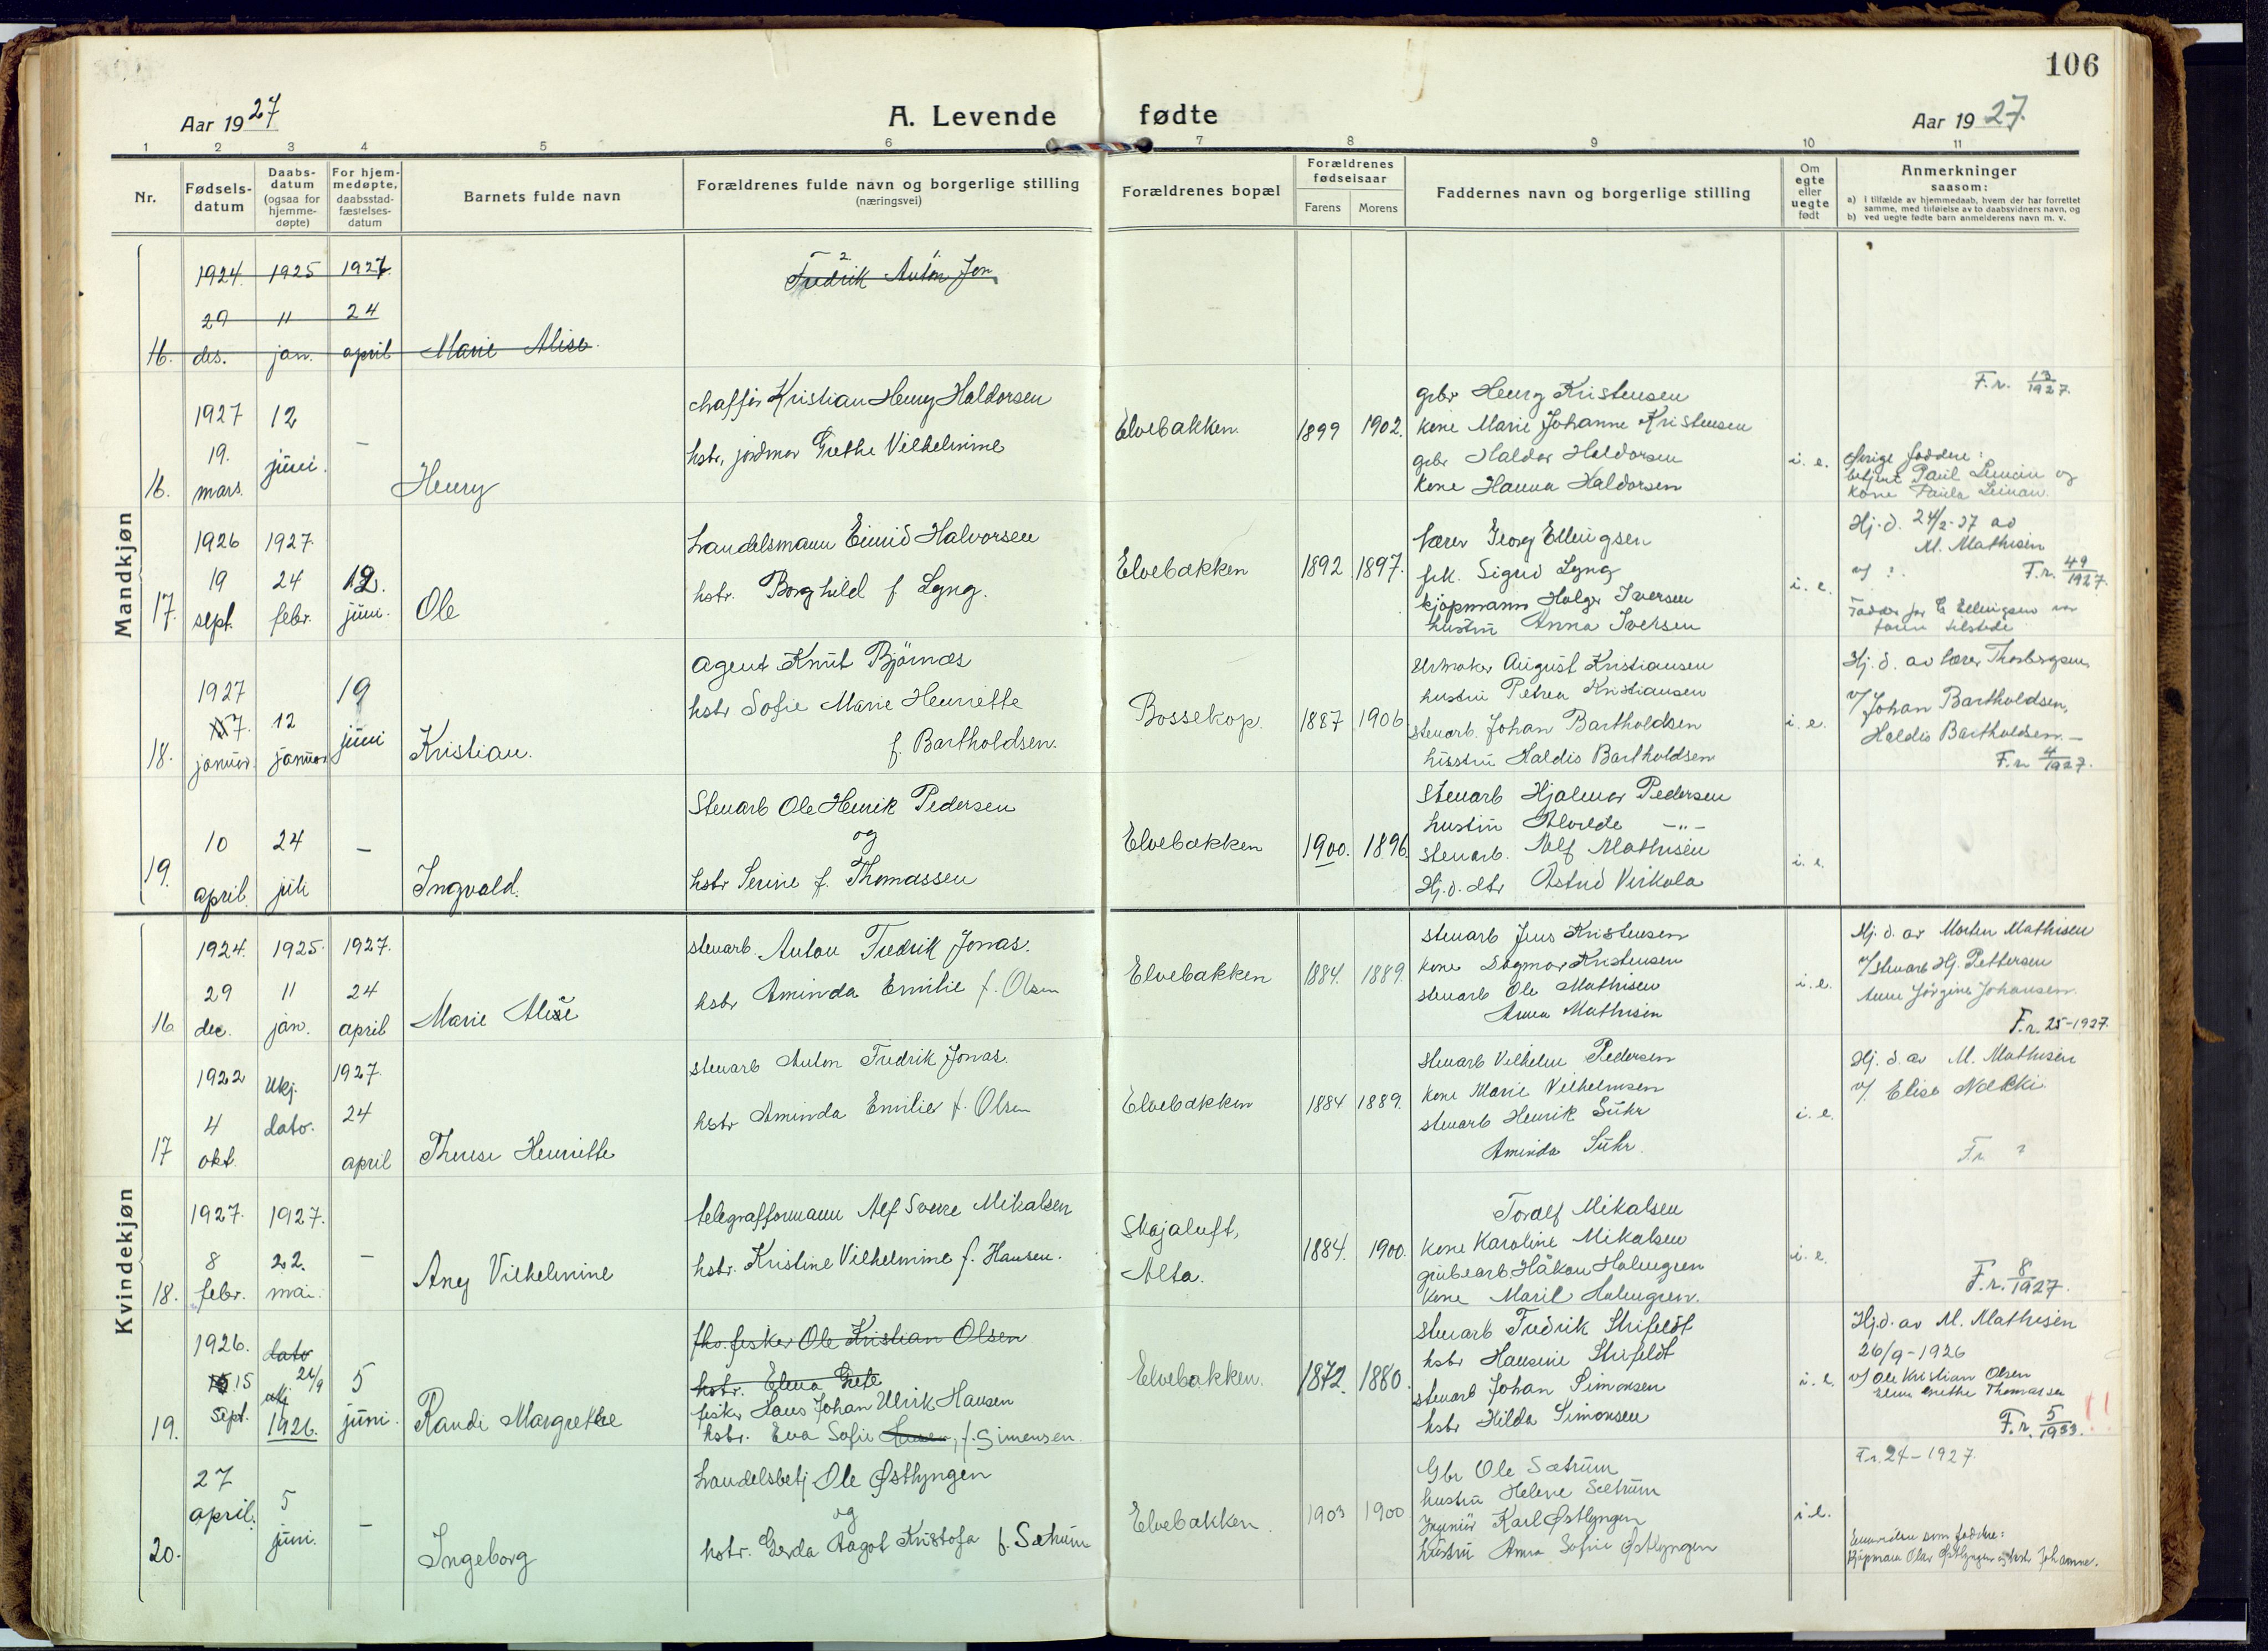 106
Aar 1927
A. Levende fødte
Aar 1927.
1 2 3 4 5 6 7 8 9 10 11
Nr.
Fødsels-
datum
Daabs-
datum
(ogsaa for
hjemme-
døpte)
For hjem-
medøpte,
daabsstad-
fæstelses-
datum
Barnets fulde navn
Forældrenes fulde navn og borgerlige stilling
(næringsvei)
Forældrenes bopæl
Forældrenes
fødselsaar
Farens Morens
Faddernes navn og borgerlige stilling
Om
egte
eller
uegte
født
Anmerkninger
saasom:
a) I tilfælde av hjemmedaab, hvem der har forrettet
samme, med tilføielse av to daabsvidners navn, og
b) ved uegte fødte barn anmelderens navn m. v.
Mandkjøn
1924. 1925 1927.
Fredrik Anton Jon
29 11 24
16. des. jan. april Marie Alise.
chaffør Kristian Henry Haldorsen
hstr. jordmor Grethe Vilhelmine
1927 12 –
19. juni.
16. mars. Henry
Elvebakken. 1899 1902.
gbr Henry Kristensen
kone Marie Johanne Kristensen
gbr Haldor Haldorsen
kone Hanna Haldorsen
i. e.
F.r. 13/1927.
øvrige faddere:
betjent Paul
kone Paula Leinan.
Handelsmann Eivind Halvorsen
hstr. Borghild f Lyng.
1926 1927.
19 24 12.
17. sept. febr. juni. Ole
Elvebakken 1892 1897.
lærer Georg Ellingsen
frk. Sigrid Lyng
kjøpmann Holger Iversen
hustru Anna Iversen
i. e.
Hj. d. 24/2-27 av
M. Mathisen
v/ ?. F.r. 49/1927.
Fadder for E Ellingsen var
faren tilstede
Agent Knut Bjørnæs
hstr Sofie Marie Henriette
f. Bartholdsen.
1927 19
7. 12 juni
18. januar. januar Kristian.
Bossekop. 1887 1906
Urmaker August Kristiansen
hustru Petrea Kristiansen
stenarb. Johan Bartholdsen
hustru Haldis Bartholdsen
i. e.
Hj. d. av lærer Thorbergsen
v/ Johan Bartholdsen,
Haldis Bartholdsen. –
F.r. 4/1927.
Stenarb Ole Henrik Pedersen
og
hstr Serine f. Thomassen
10 24 –
19. april. juli Ingvald.
Elvebakken 1900. 1896.
Stenarb Hjalmar Pedersen
hustru Alvilde –"–
stenarb. Alf Mathisen
Hj. d. dtr Astrid Virkola
i. e.
Kvindekjøn
stenarb. Anton Fredrik Jonas.
hstr Aminda Emilie f. Olsen
1924. 1925. 1927.
29 11 24
16 dec. jan. april Marie Alise
Elvebakken 1884. 1889.
stenarb Jens Kristensen
kone Dagmar Kristensen
stenarb Ole Mathisen
Anna Mathisen
i. e.
Hj. d. av Morten Mathisen
v/ stenarb Hj. Pettersen
Anne Jørgine Johansen.
F.r. 25-1927.
stenarb Anton Fredrik Jonas.
hstr Aminda Emilie f. Olsen
1922 Ukj. 1927.
4 dato. 24
17 okt. april Therese Henriette
Elvebakken 1884 1889.
stenarb Vilhelm Pedersen
kone Marie Vilhelmsen
stenarb Henrik Suhr
Aminda Suhr.
i. e.
Hj. d. av M. Mathisen
v/ Elise Nækki.
F.r. ?
telegrafformann Alf Sverre Mikalsen
hstr. Kristine Vilhelmine f. Hansen.
1927. 1927.
8 22. –
18. febr. mai. Any Vilhelmine
Skajaluft,
Alta.
1884. 1900.
Toralf Mikalsen
kone Karoline Mikalsen
grubearb Håkon Holmgren
kone Marit Holmgren.
i. e.
F.r. 8/1927.
fho. fisker Ole Kristian Olsen
hstr. Elena Grete
fisker Hans Johan Ulrik Hansen
hstr. Eva Sofie Hansen, f. Simensen.
1926. dato
15 26/9 5
sept. ukj
19. 1926. juni. Randi Margrethe
Elvebakken. 1872. 1880.
stenarb Fredrik Strifeldt
hstr Hansine Strifeldt
stenarb Johan Simonsen
hstr Hilda Simonsen
i. e.
Hj.d. av M. Mathisen
26/9-1926
v/ Ole Kristian Olsen
Elen Grethe Thomassen
F.r. 5/1933. !!
Handelsbetj Ole Østlyngen
og
hstr. Gerda Aagot Kristofa f. Sætrum
27 5 –
april. juni.
20. Ingeborg
Elvebakken. 1903 1900
Gbr Ole Sætrum
hustru Helene Sætrum
Ingeniør Karl Østlyngen
hustru Anna Sofie Østlyngen
i e.
F.r. 24-1927.
som faddere:
kjøpmann Olav Østlyngen og hstr Johanne.